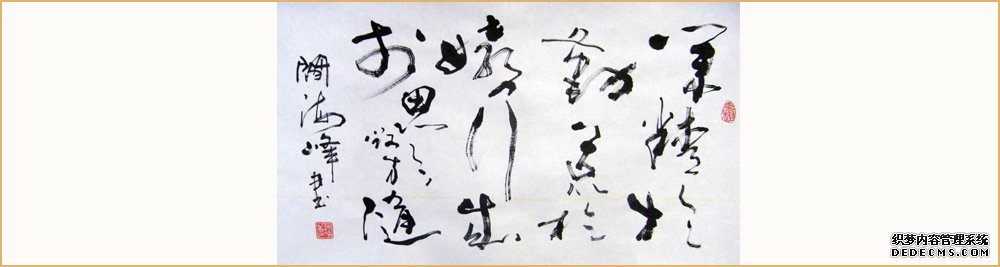 業精於
勤荒於
嬉行成
於思毀於隨
海峰書
织梦内容管理系统
DEDECMS.COM